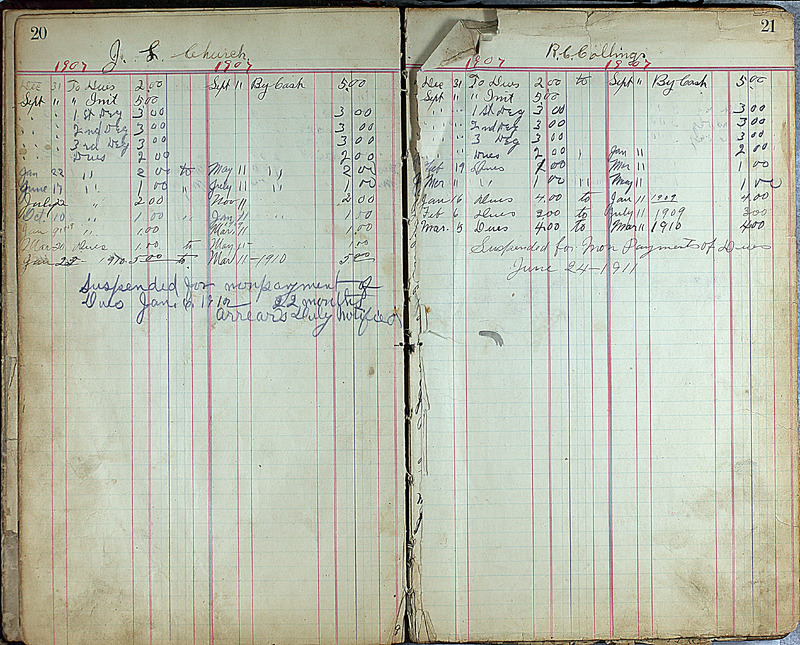 20
J. L. Church
1907 1907
Dec 31 To Dues 2 00 Sept 11 By Cash 5 00
Sept 11 " Init 5 00
" " 1 St Deg 3 00 3 00
" " 2nd Deg 3 00 3 00
" " 3rd Deg 3 00 3 00
" " Dues 2 00 2 00
Jan 22 " 2 00 to May 11 " 2 00
June 17 " 1 00 " July 11 " 1 00
July 2 " 2 00 Nov 11 2 00
Oct 10 " 1 00 " Jan 11 1 00
Jan 1 00 Mar 11 1 00
Mar 20 Dues 1 00 to May 1 00
Jan 25 - 1910 5 00 to Mar 11 - 1910 5 00
Suspended for nonpayment of
Dues Jan. 22 months
arrears Duly notified
21
R. C. Collings
1907 1907
Dec 31 To Dues 2 00 to Sept 11 By Cash 5 00
Sept 11 " Init 5 00
" " 1 St Deg 3 00 3 00
" " 2nd Deg 3 00 3 00
" " 3 Deg 3 00 3 00
" " Dues 2 00 " Jan 11 2 00
Feb 19 Dues 1 00 " Mar 11 1 00
Mar 11 " 1 00 " May 11 1 00
Jan 16 Dues 4.00 to Jan 11 1909 4.00
Feb 6 Dues 3 00 to July 11 1909 3 00
Mar. 5 Dues 4.00 to Mar 11 1910 4 00
Suspended for Non Payment of Dues
June 24-1911